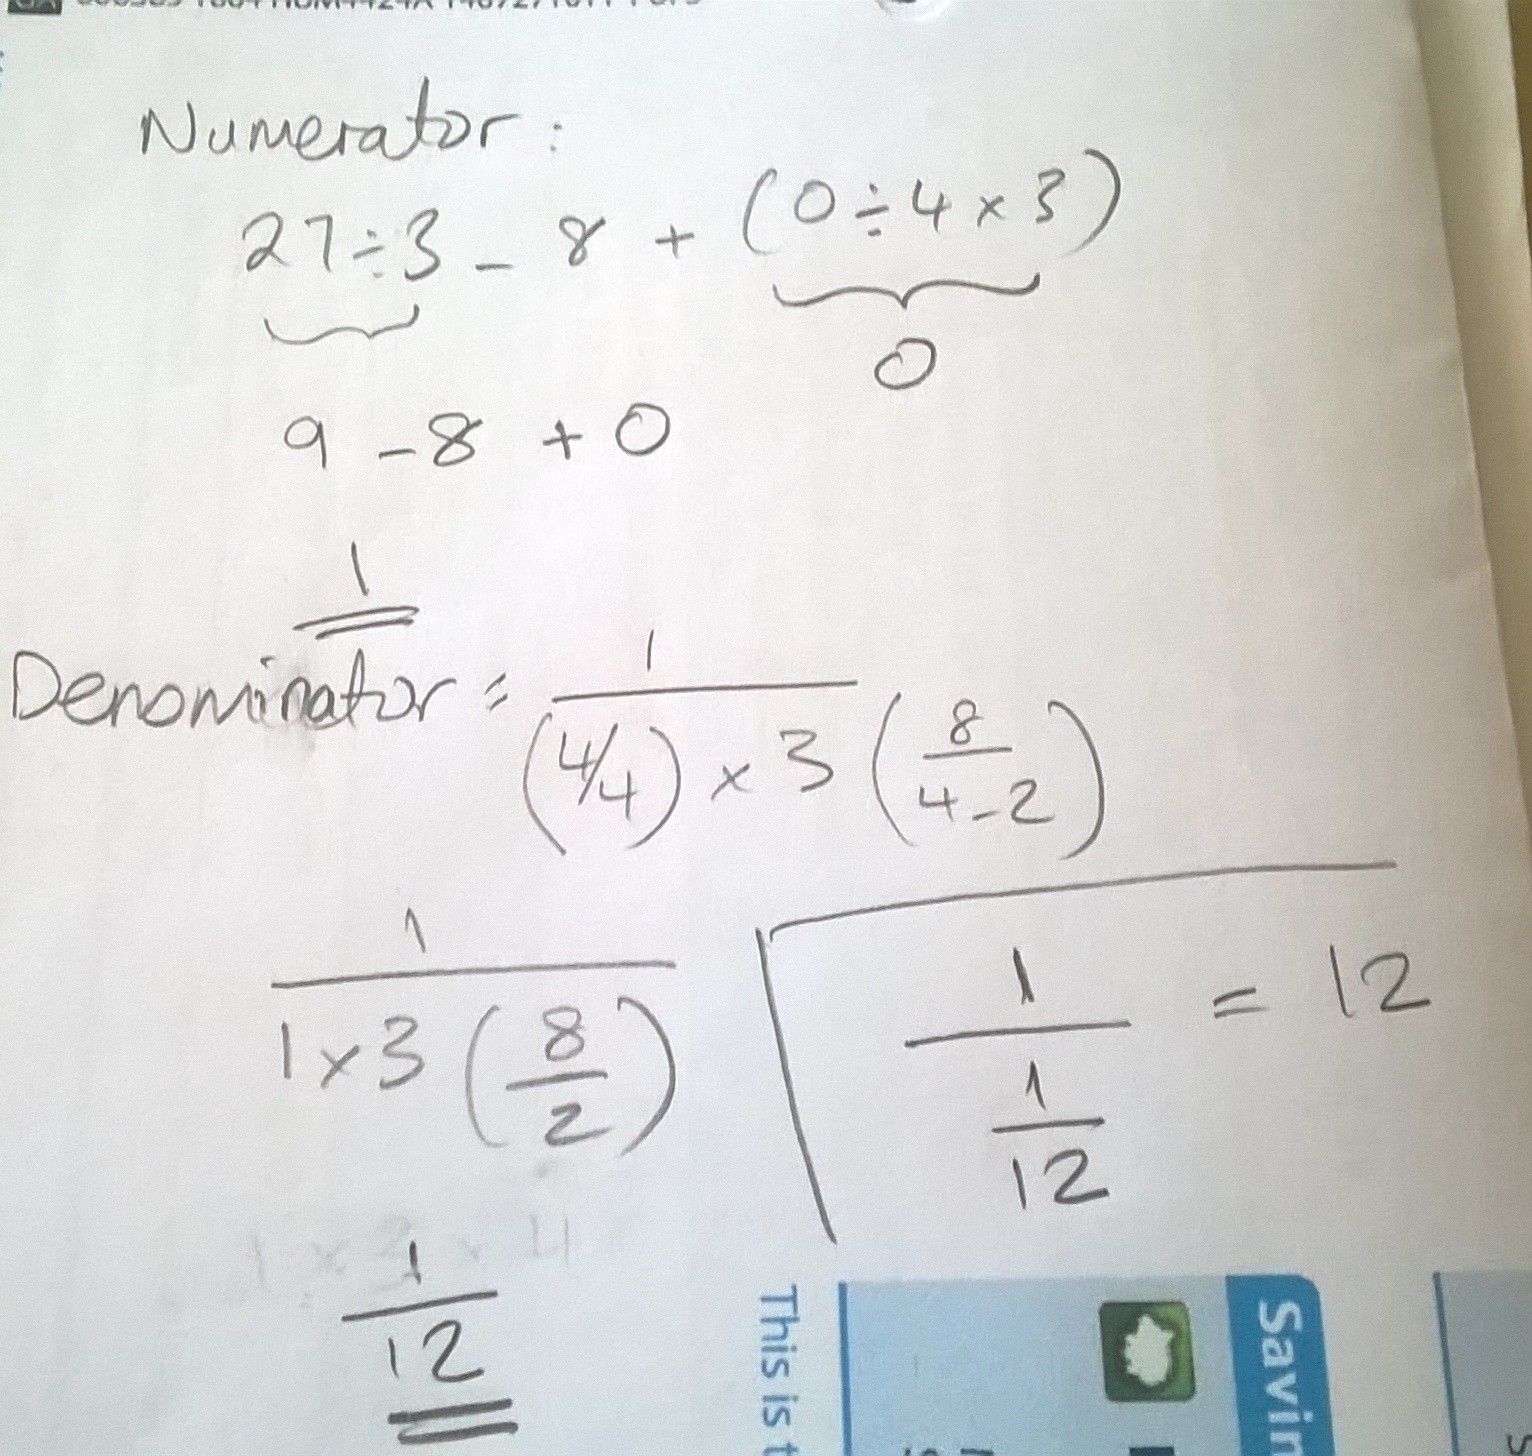 Numerator:
27 ÷ 3 - 8 + (0 ÷ 4 × 3)
0
9 - 8 + 0
1
Denominator = 1 / (4/4) × 3 (8 / 4 - 2)
1 / 1 × 3 (8 / 2)
1 / 12
1 / 1 / 12 = 12
This is
Savin